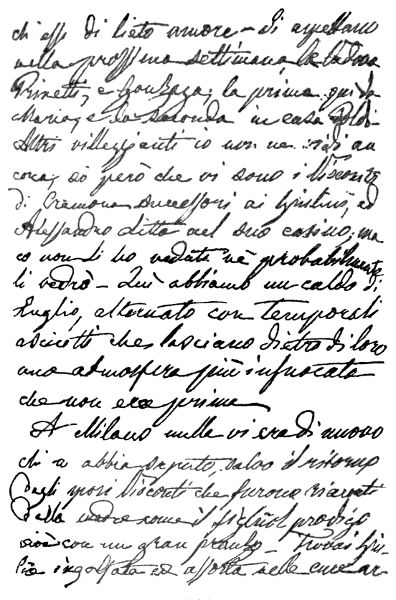 ch'essi di lieto umore – Si aspettano
nella prossima settimana le
Prinetti, e Gonzaga; la prima qui da
Maria, e la seconda in casa
Altri villeggianti io non ne vidi an
cora, so però che vi sono i Visconti
di Cremona successori ai Giulini, ed
Alessandro Litta nel suo casino, ma
io non li ho veduti nè probabilmente
li vedrò – Quì abbiamo un caldo di
Luglio, alternato con temporali
asciutti che lasciano dietro di loro
una atmosfera più infuocata
che non era prima
A Milano nulla vi era di nuovo
ch'io abbia saputo, salvo il ritorno
degli sposi Visconti che furono
dalla madre come il figliuol prodigo
cioè con un gran pranzo – Trovai Giu-
lia ingolfata ed assorta nelle cure